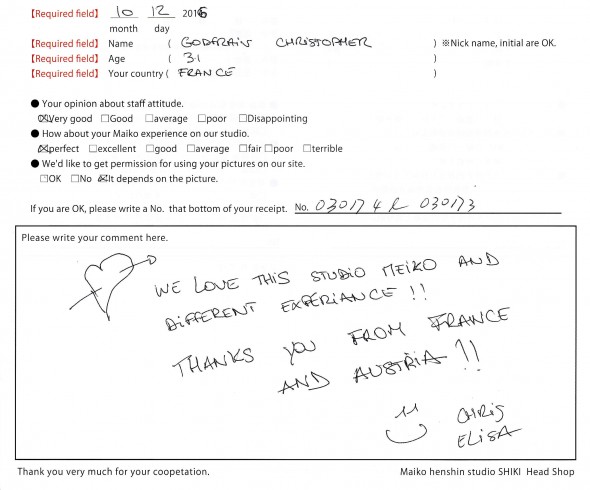 【Required field】 10 12 2016
month day
【Required field】 Name ( GODFRAIN CHRISTOPHER ) ※Nick name, initial are OK.
【Required field】 Age ( 31 )
【Required field】 Your country ( FRANCE )
● Your opinion about staff attitude.
☒Very good □Good □average □poor □Disappointing
● How about your Maiko experience on our studio.
☒perfect □excellent □good □average □fair □poor □terrible
● We'd like to get permission for using your pictures on our site.
□OK □No ☒It depends on the picture.
If you are OK, please write a No. that bottom of your receipt. No. 030174 & 030173
Please write your comment here.
WE LOVE THIS STUDIO MEIKO AND
DIFFERENT EXPERIANCE !!
THANKS YOU FROM FRANCE
AND AUSTRIA !!
CHRIS
ELISA
Thank you very much for your coopetation. Maiko henshin studio SHIKI Head Shop